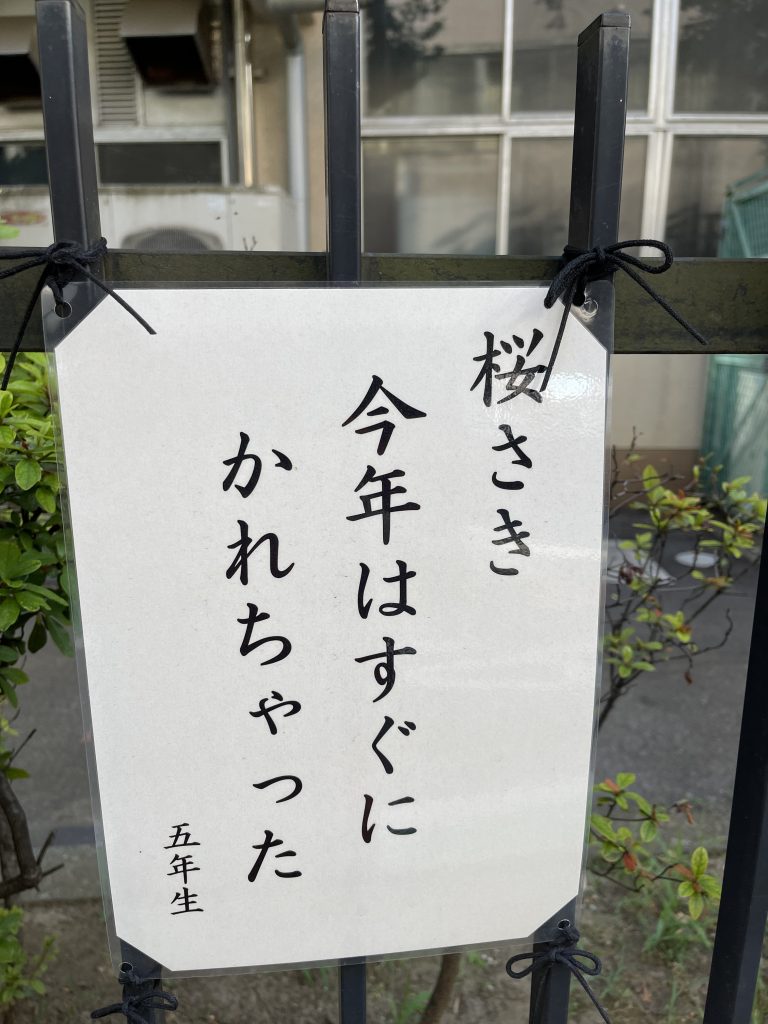 桜さき
今年はすぐに
かれちゃった
五年生